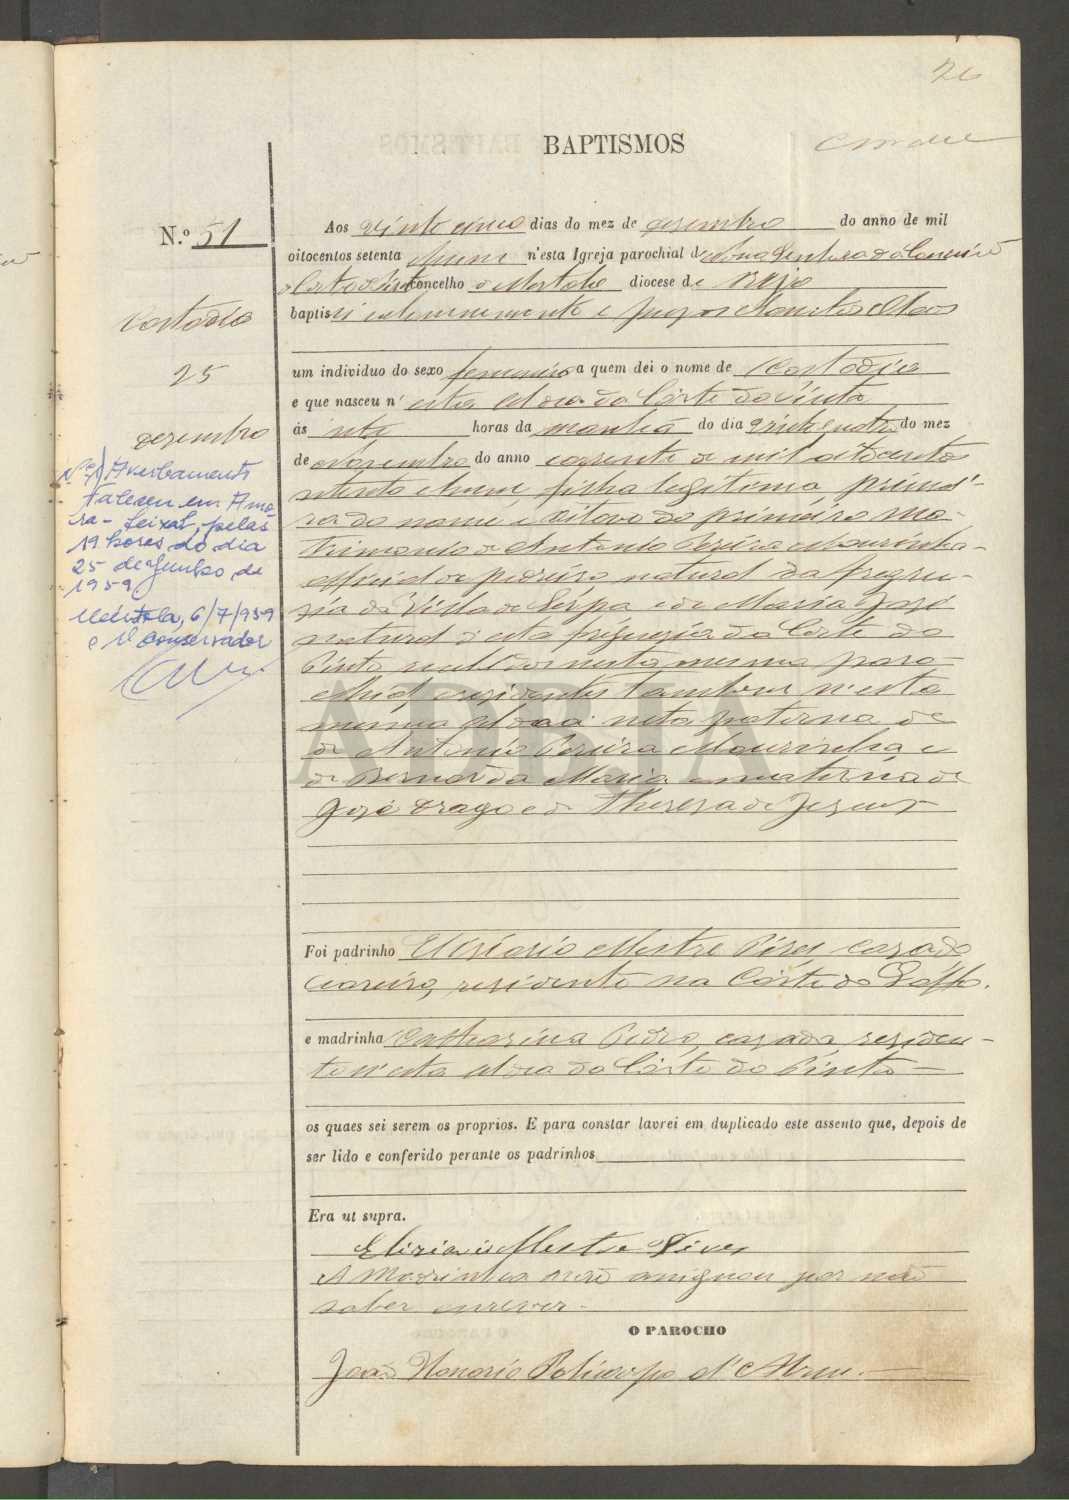 26
BAPTISMOS
N.º 51
Custodia
25
dezembro
Nº 1) Averbamento
Faleceu em Amo-
ra - Seixal, pelas
19 horas do dia
25 de Junho de
1959
Mértola, 6/7/959
O Conservador
Aos vinte cinco dias do mez de dezembro do anno de mil
oitocentos setenta e hum n'esta Igreja parochial de Nossa Senhora da Conceição
concelho de Mertola diocese de Beja
baptisei solemnemente e puz os Santos Oleos
um individuo do sexo femenino a quem dei o nome de Custodia
e que nasceu n' esta Aldea da Côrte do Pinto
ás horas da manhã do dia vinte quatro do mez
de Novembro do anno corrente de mil oitocentos
setenta e hum filha legitima primei-
ra do nome e oitava do primeiro ma-
trimonio de Antonio Pereira Mourinha
official de pedreiro natural da fregue-
zia da Villa de Serpa e de Maria José
natural d'esta freguezia da Corte do
Pinto recebidos nesta mesma paro-
chia e rezidentes tambem n'esta
mesma Aldea: neta paterna de
de Antonio Pereira Mourinha e
de Bernarda Maria e materna de
José Drago e de Thereza de Jezus
Foi padrinho Elziario Mestre Pires, cazado
rezidente na Côrte do
e madrinha Catharina Pedro, cazada, reziden-
te n'esta Aldea da Côrte do Pinto
os quaes sei serem os proprios. E para constar lavrei em duplicado este assento que, depois de
ser lido e conferido perante os padrinhos
Era ut supra.
Mestre Pires
A Madrinha não assignou por não
saber escrever.
O PAROCHO
João Honorio Policarpo d'Abreu.
ADBJA